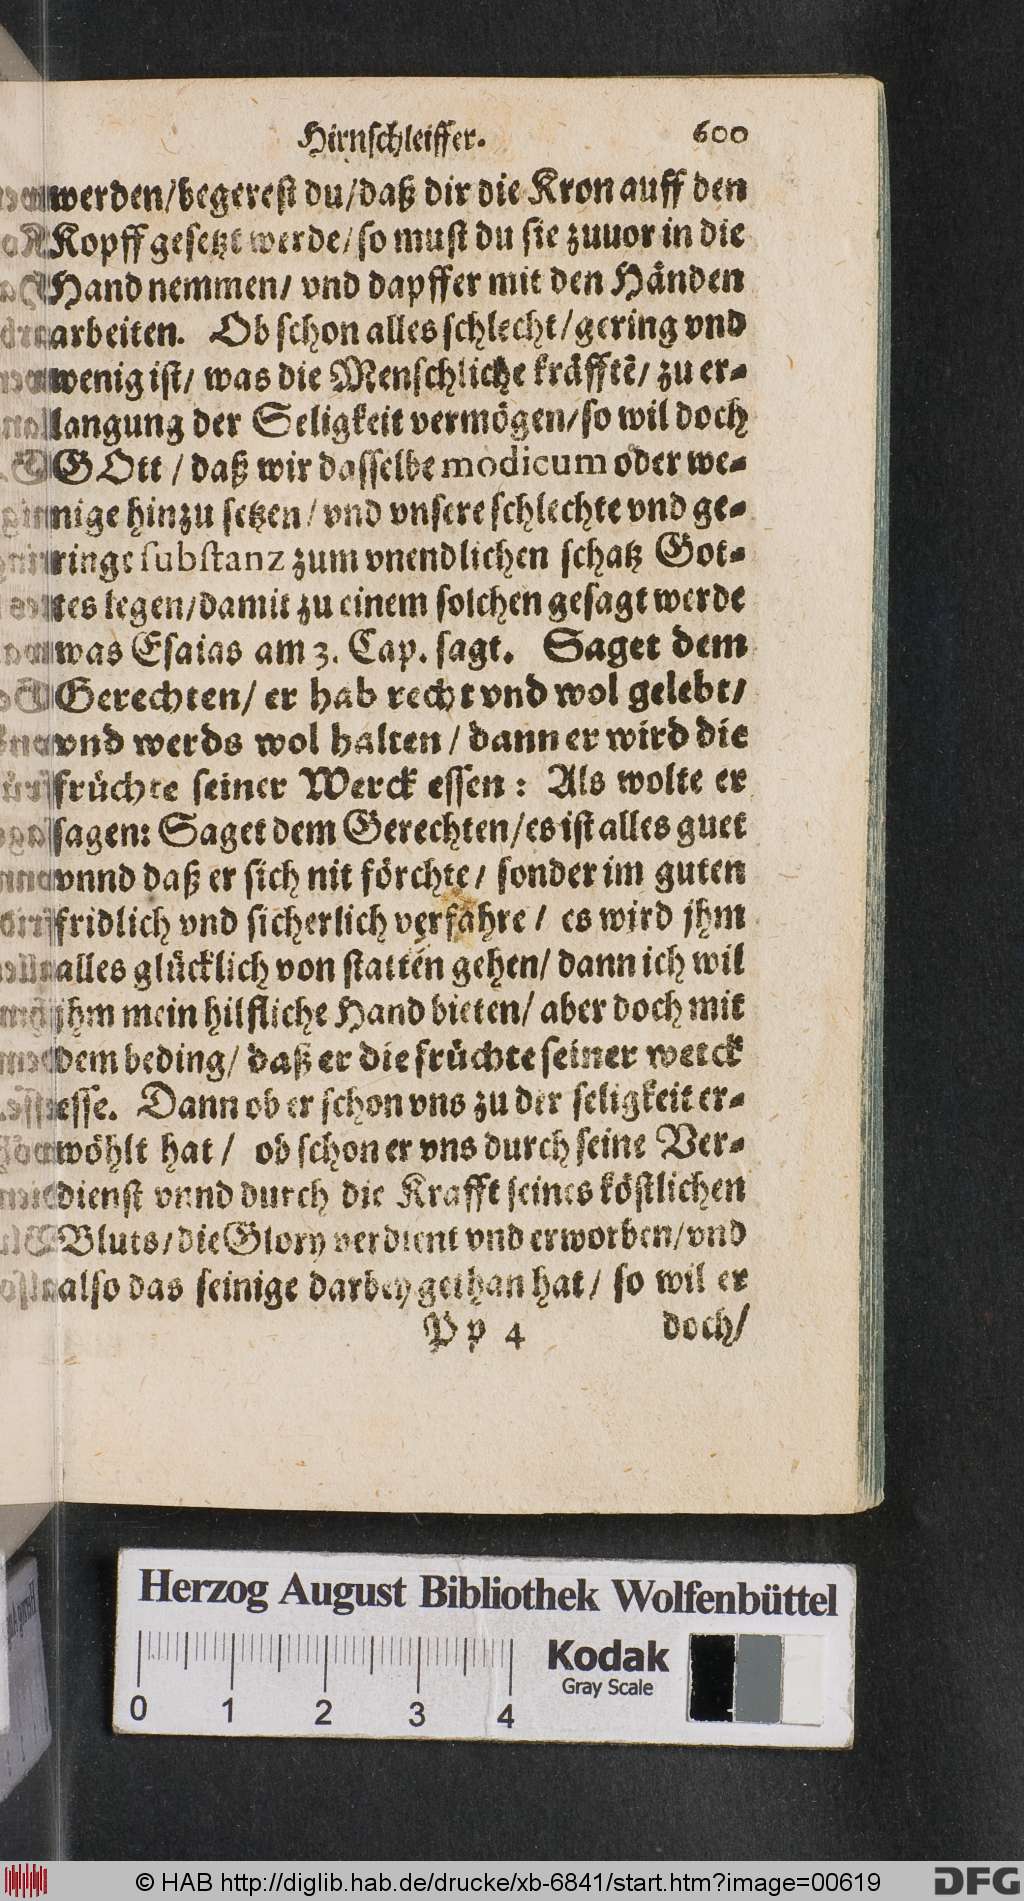 Hirnschleiffer. 600
werden/begerest du/daß dir die Kron auff den
Kopff gesetzt werde/so must du sie zuuor in die
Hand nemmen/ vnd dapffer mit den Händen
arbeiten. Ob schon alles schlecht/gering vnd
wenig ist/ was die Menschliche kräfftē/ zu er-
langung der Seligkeit vermögen/so wil doch
GOtt / daß wir dasselbe modicum oder we-
nige hinzu setzen/vnd vnsere schlechte vnd ge-
ringe substanz zum vnendlichen schatz Got-
tes legen/damit zu einem solchen gesagt werde
was Esaias am 3. Cap. sagt. Saget dem
Gerechten/ er hab recht vnd wol gelebt/
vnd werds wol halten / dann er wird die
früchte seiner Werck essen: Als wolte er
sagen: Saget dem Gerechten/es ist alles guet
vnnd daß er sich nit förchte/ sonder im guten
fridlich vnd sicherlich verfahre / es wird jhm
alles glücklich von statten gehen/ dann ich wil
jhm mein hilfliche Hand bieten/ aber doch mit
dem beding/ daß er die früchte seiner werck
esse. Dann ob er schon vns zu der seligkeit er-
wöhlt hat / ob schon er vns durch seine Ver-
dienst vnnd durch die Krafft seines köstlichen
Bluts/die Glory verdient vnd erworben/vnd
also das seinige darbey gethan hat/ so wil er
Pp 4 doch/
Herzog August Bibliothek Wolfenbüttel
0 1 2 3 4
Kodak
Gray Scale
© HAB http://diglib.hab.de/drucke/xb-6841/start.htm?image=00619
DFG